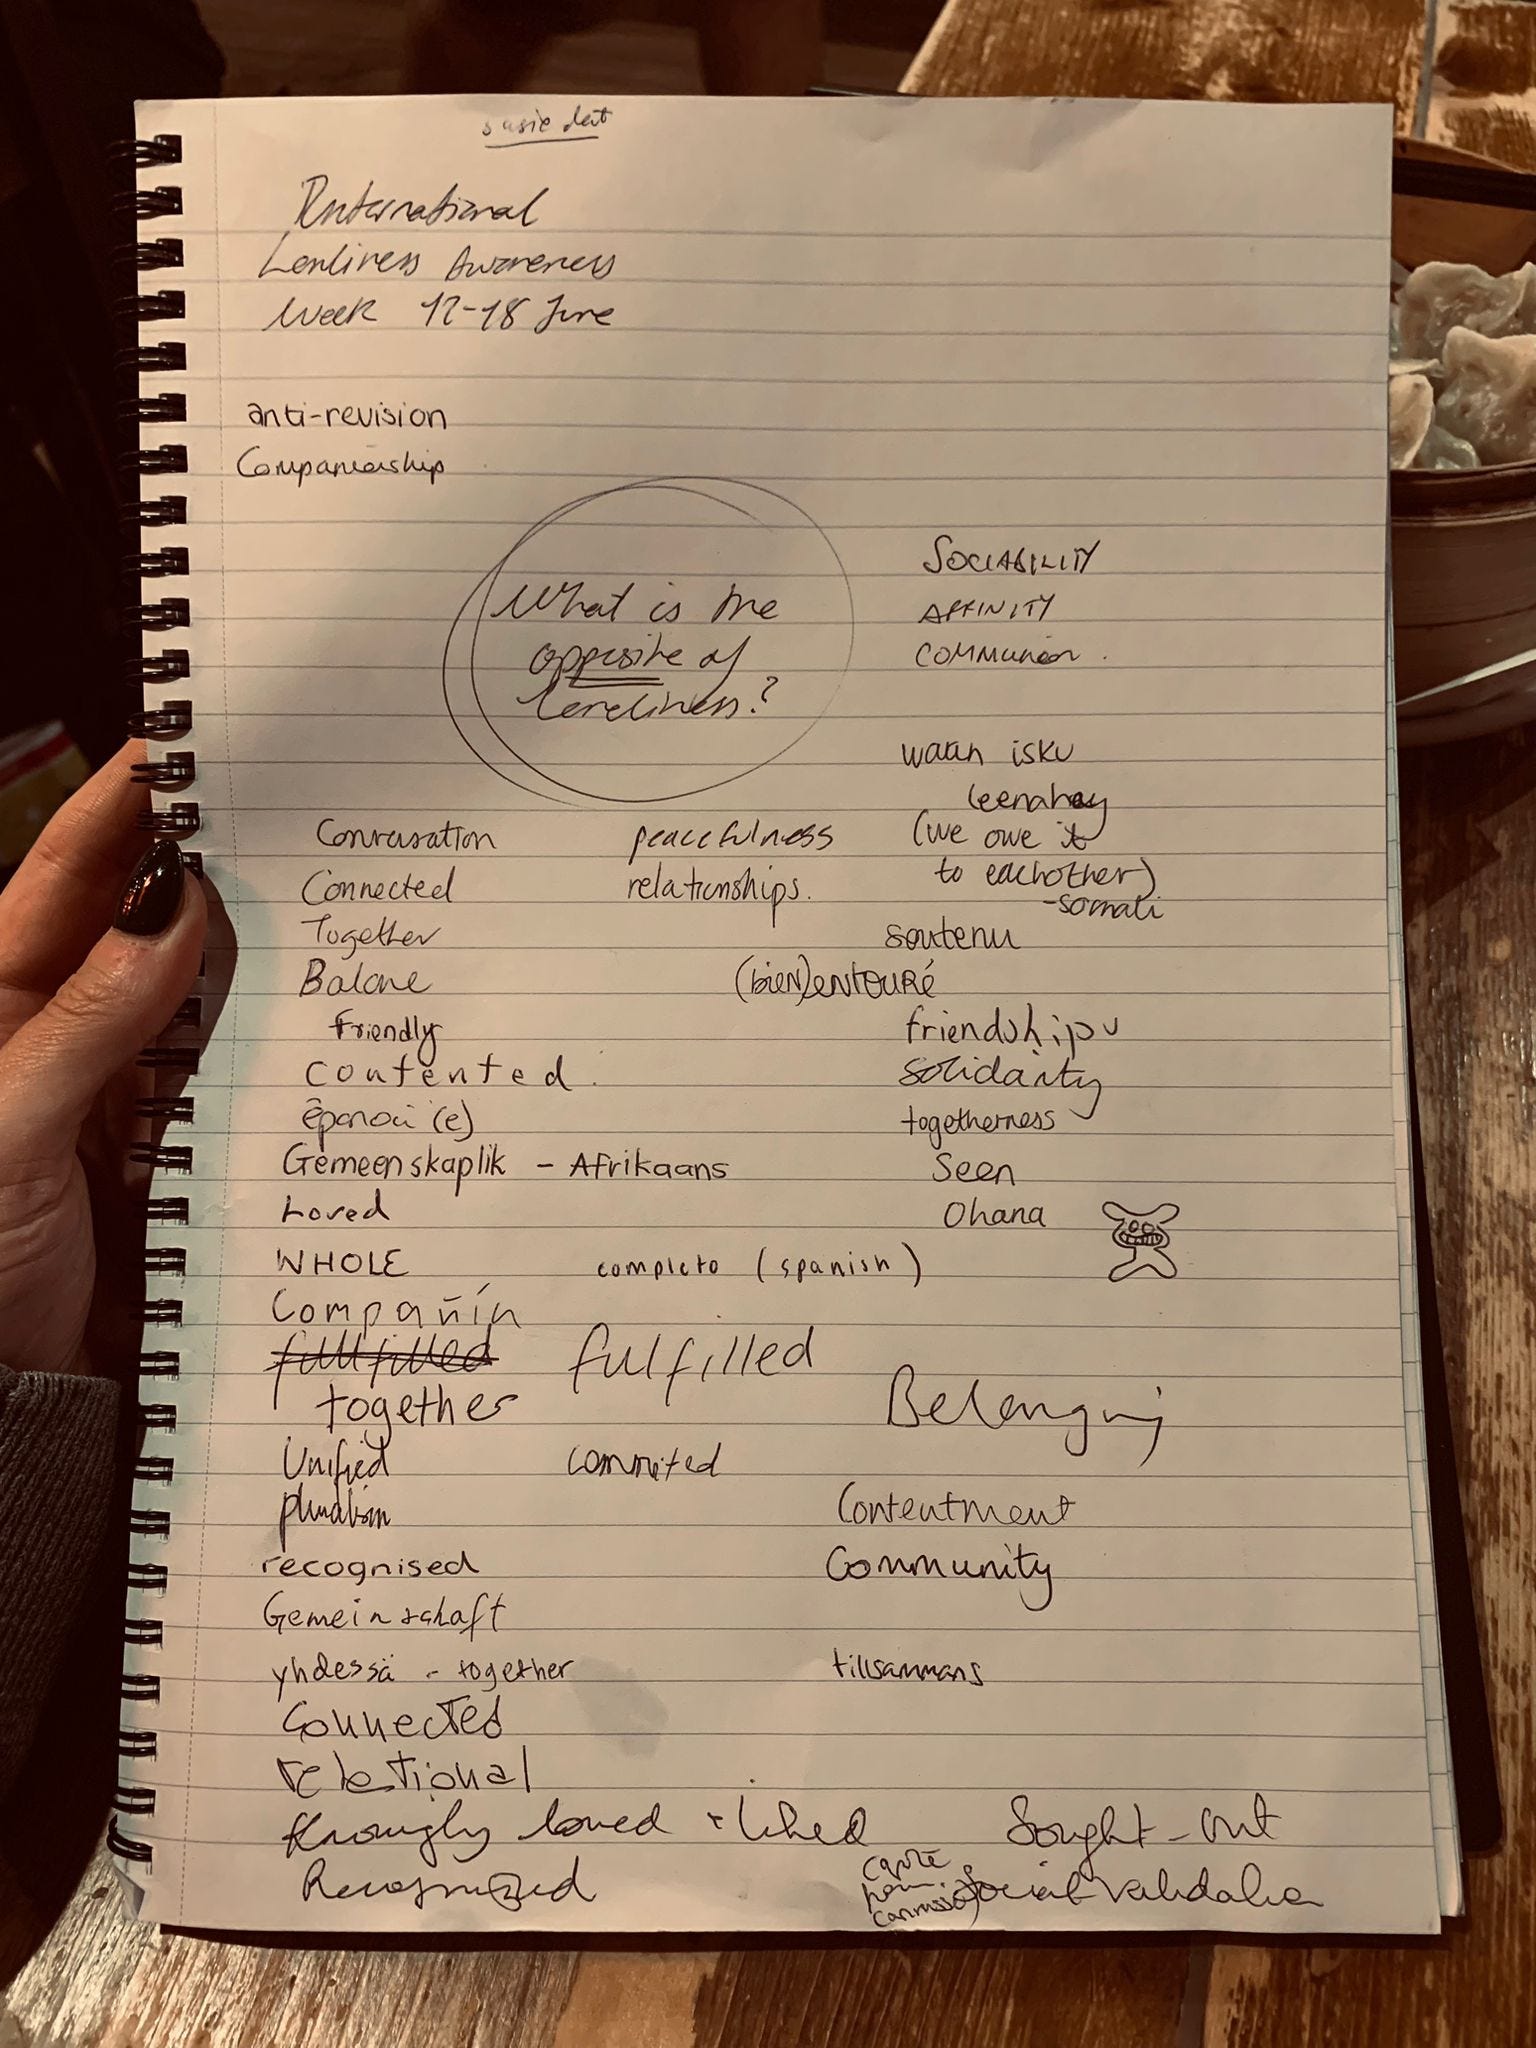 susie dent
International
Lonliness Awareness
Week 12-18 June
anti-revision
Companionship
What is the
opposite of
loneliness?
SOCIABILITY
AFFINITY
COMMUNION.
waan isku
leenahay
(we owe it
to eachother)
-somali
Conversation
Connected
Together
Balance
Friendly
Contented.
épanoui (e)
Gemeenskaplik - Afrikaans
Loved
WHOLE
Compañía
fullfilled
together
Unified
pluralism
recognised
Gemeinschaft
yhdessä - together
Connected
relational
loved + liked
Recognized
peacefulness
relationships.
soutenu
(bien)entouré
friendships
solidarity
togetherness
Seen
Ohana
completo (spanish)
fulfilled
Belonging
commited
Contentment
Community
tillsammans
Sought-out
Social validation